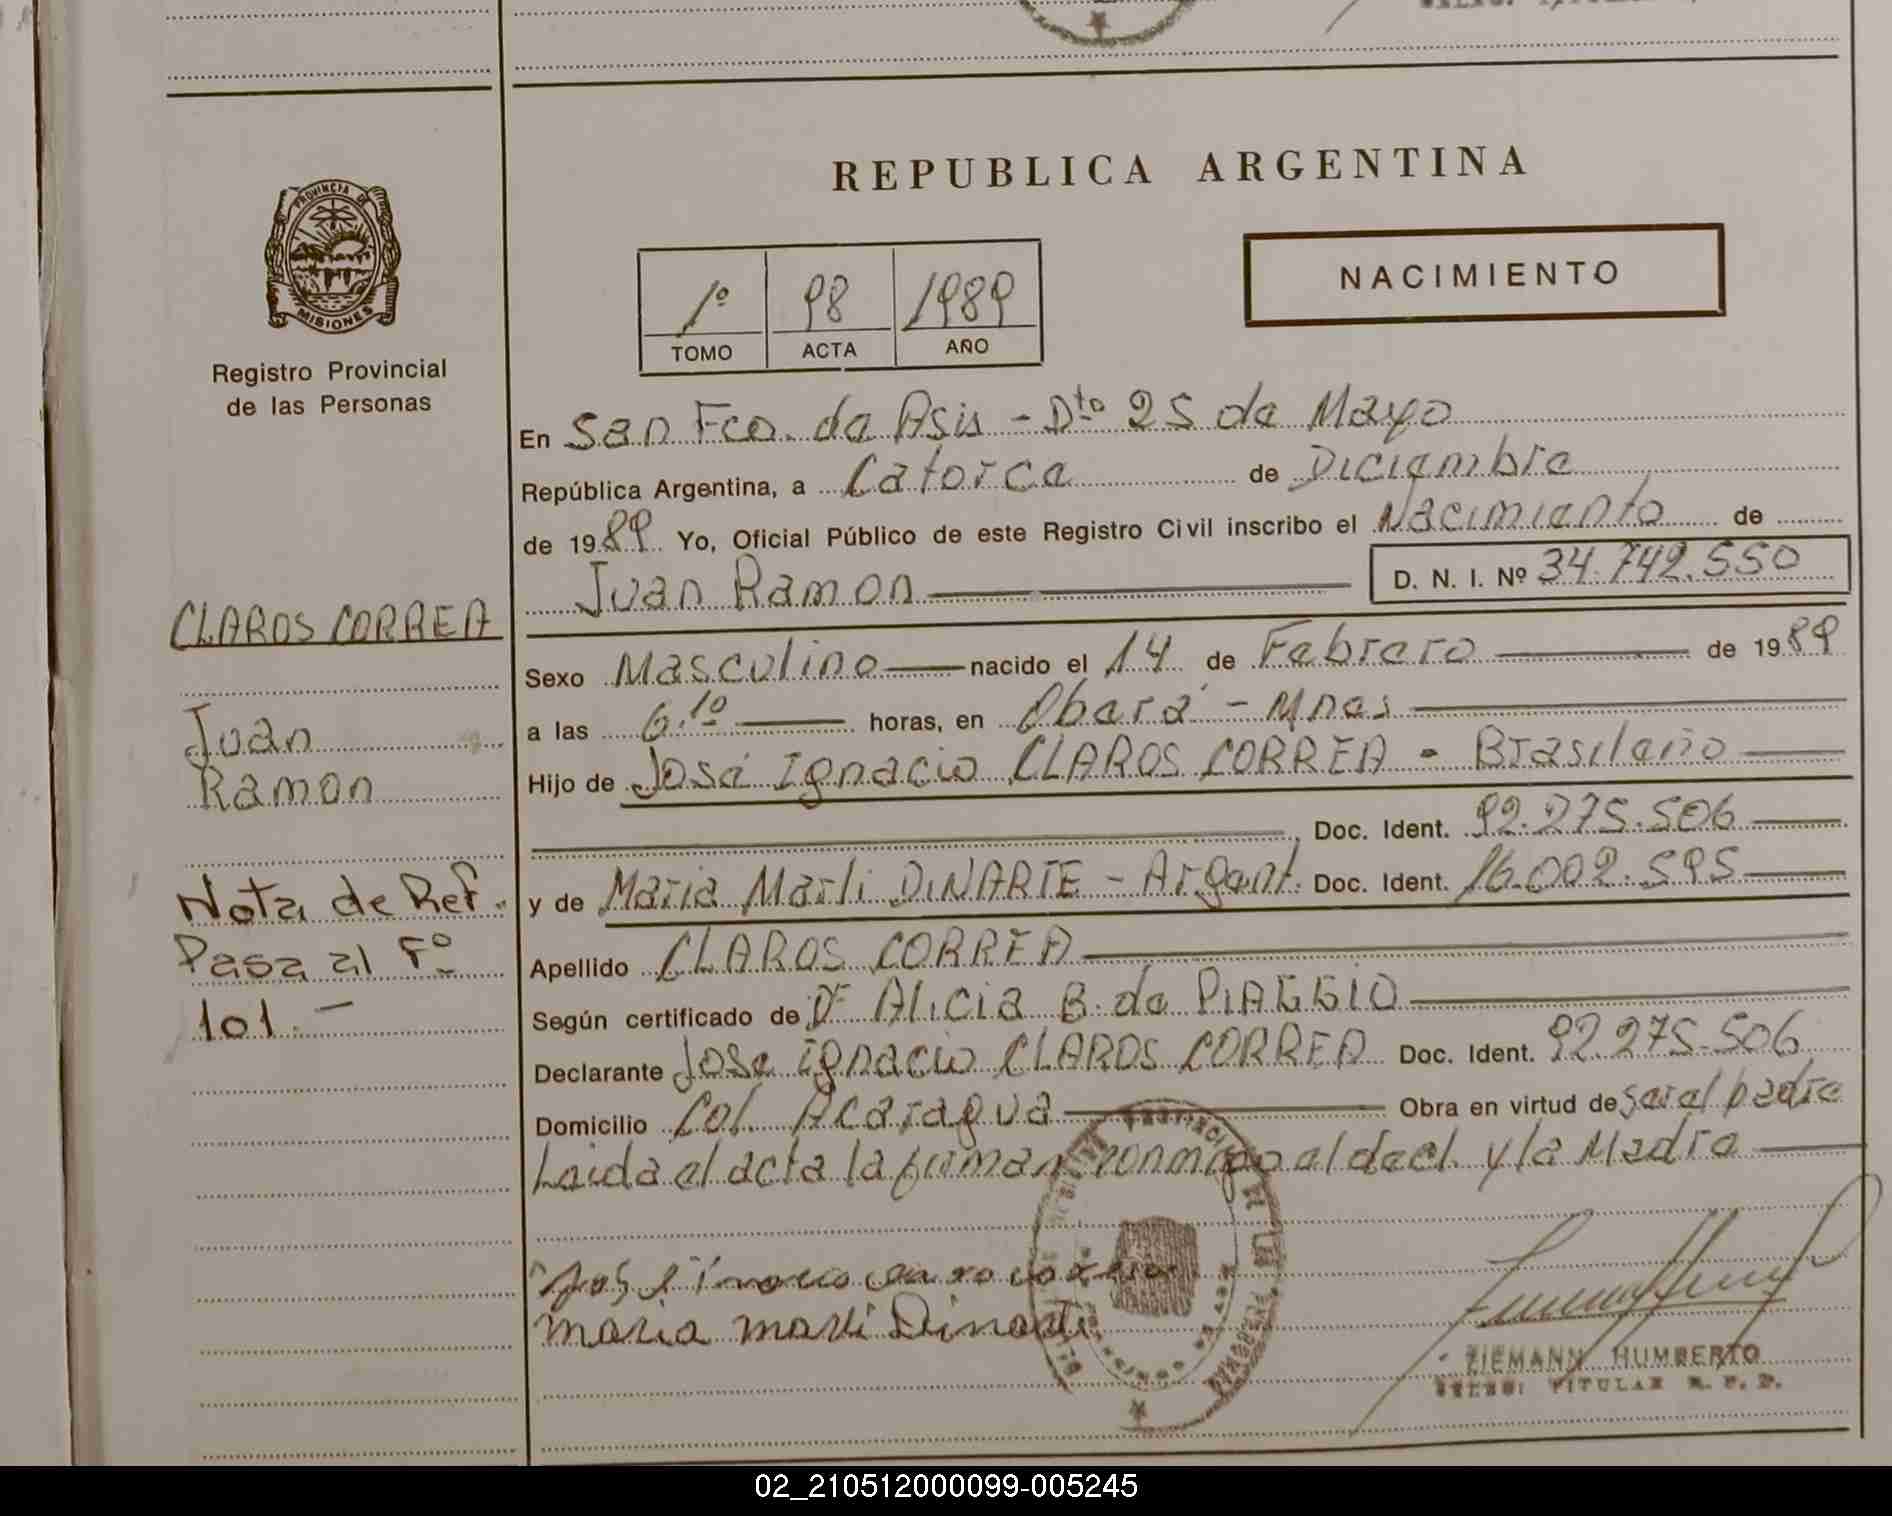 REPUBLICA ARGENTINA
PROVINCIA DE
MISIONES
Registro Provincial
de las Personas
NACIMIENTO
1º 98 1989
TOMO ACTA AÑO
En San Fco. de Asis - Dto 25 de Mayo
República Argentina, a Catorce de Diciembre
de 1989 Yo, Oficial Público de este Registro Civil inscribo el Nacimiento de
Juan Ramon D. N. I. Nº 34.742.550
CLAROS CORREA
Juan
Ramon
Nota de Ref.
Pasa al Fº
101.-
Sexo Masculino nacido el 14 de Febrero de 1989
a las 6.10 horas, en Oberá - Mnes
Hijo de José Ignacio CLAROS CORREA - Brasileño
Doc. Ident. 92.275.506
y de Maria Marli DINARTE - Argent. Doc. Ident. 16.002.595
Apellido CLAROS CORREA
Según certificado de Dr Alicia B. de PIAGGIO
Declarante Jose Ignacio CLAROS CORREA Doc. Ident. 92.275.506
Domicilio Col. Acaragua Obra en virtud de ser el padre
Leida el acta la firman conmigo el decl. y la Madre
maria marli Dinarte
ZIEMANN HUMBERTO
TITULAR R. P. P.
02_210512000099-005245